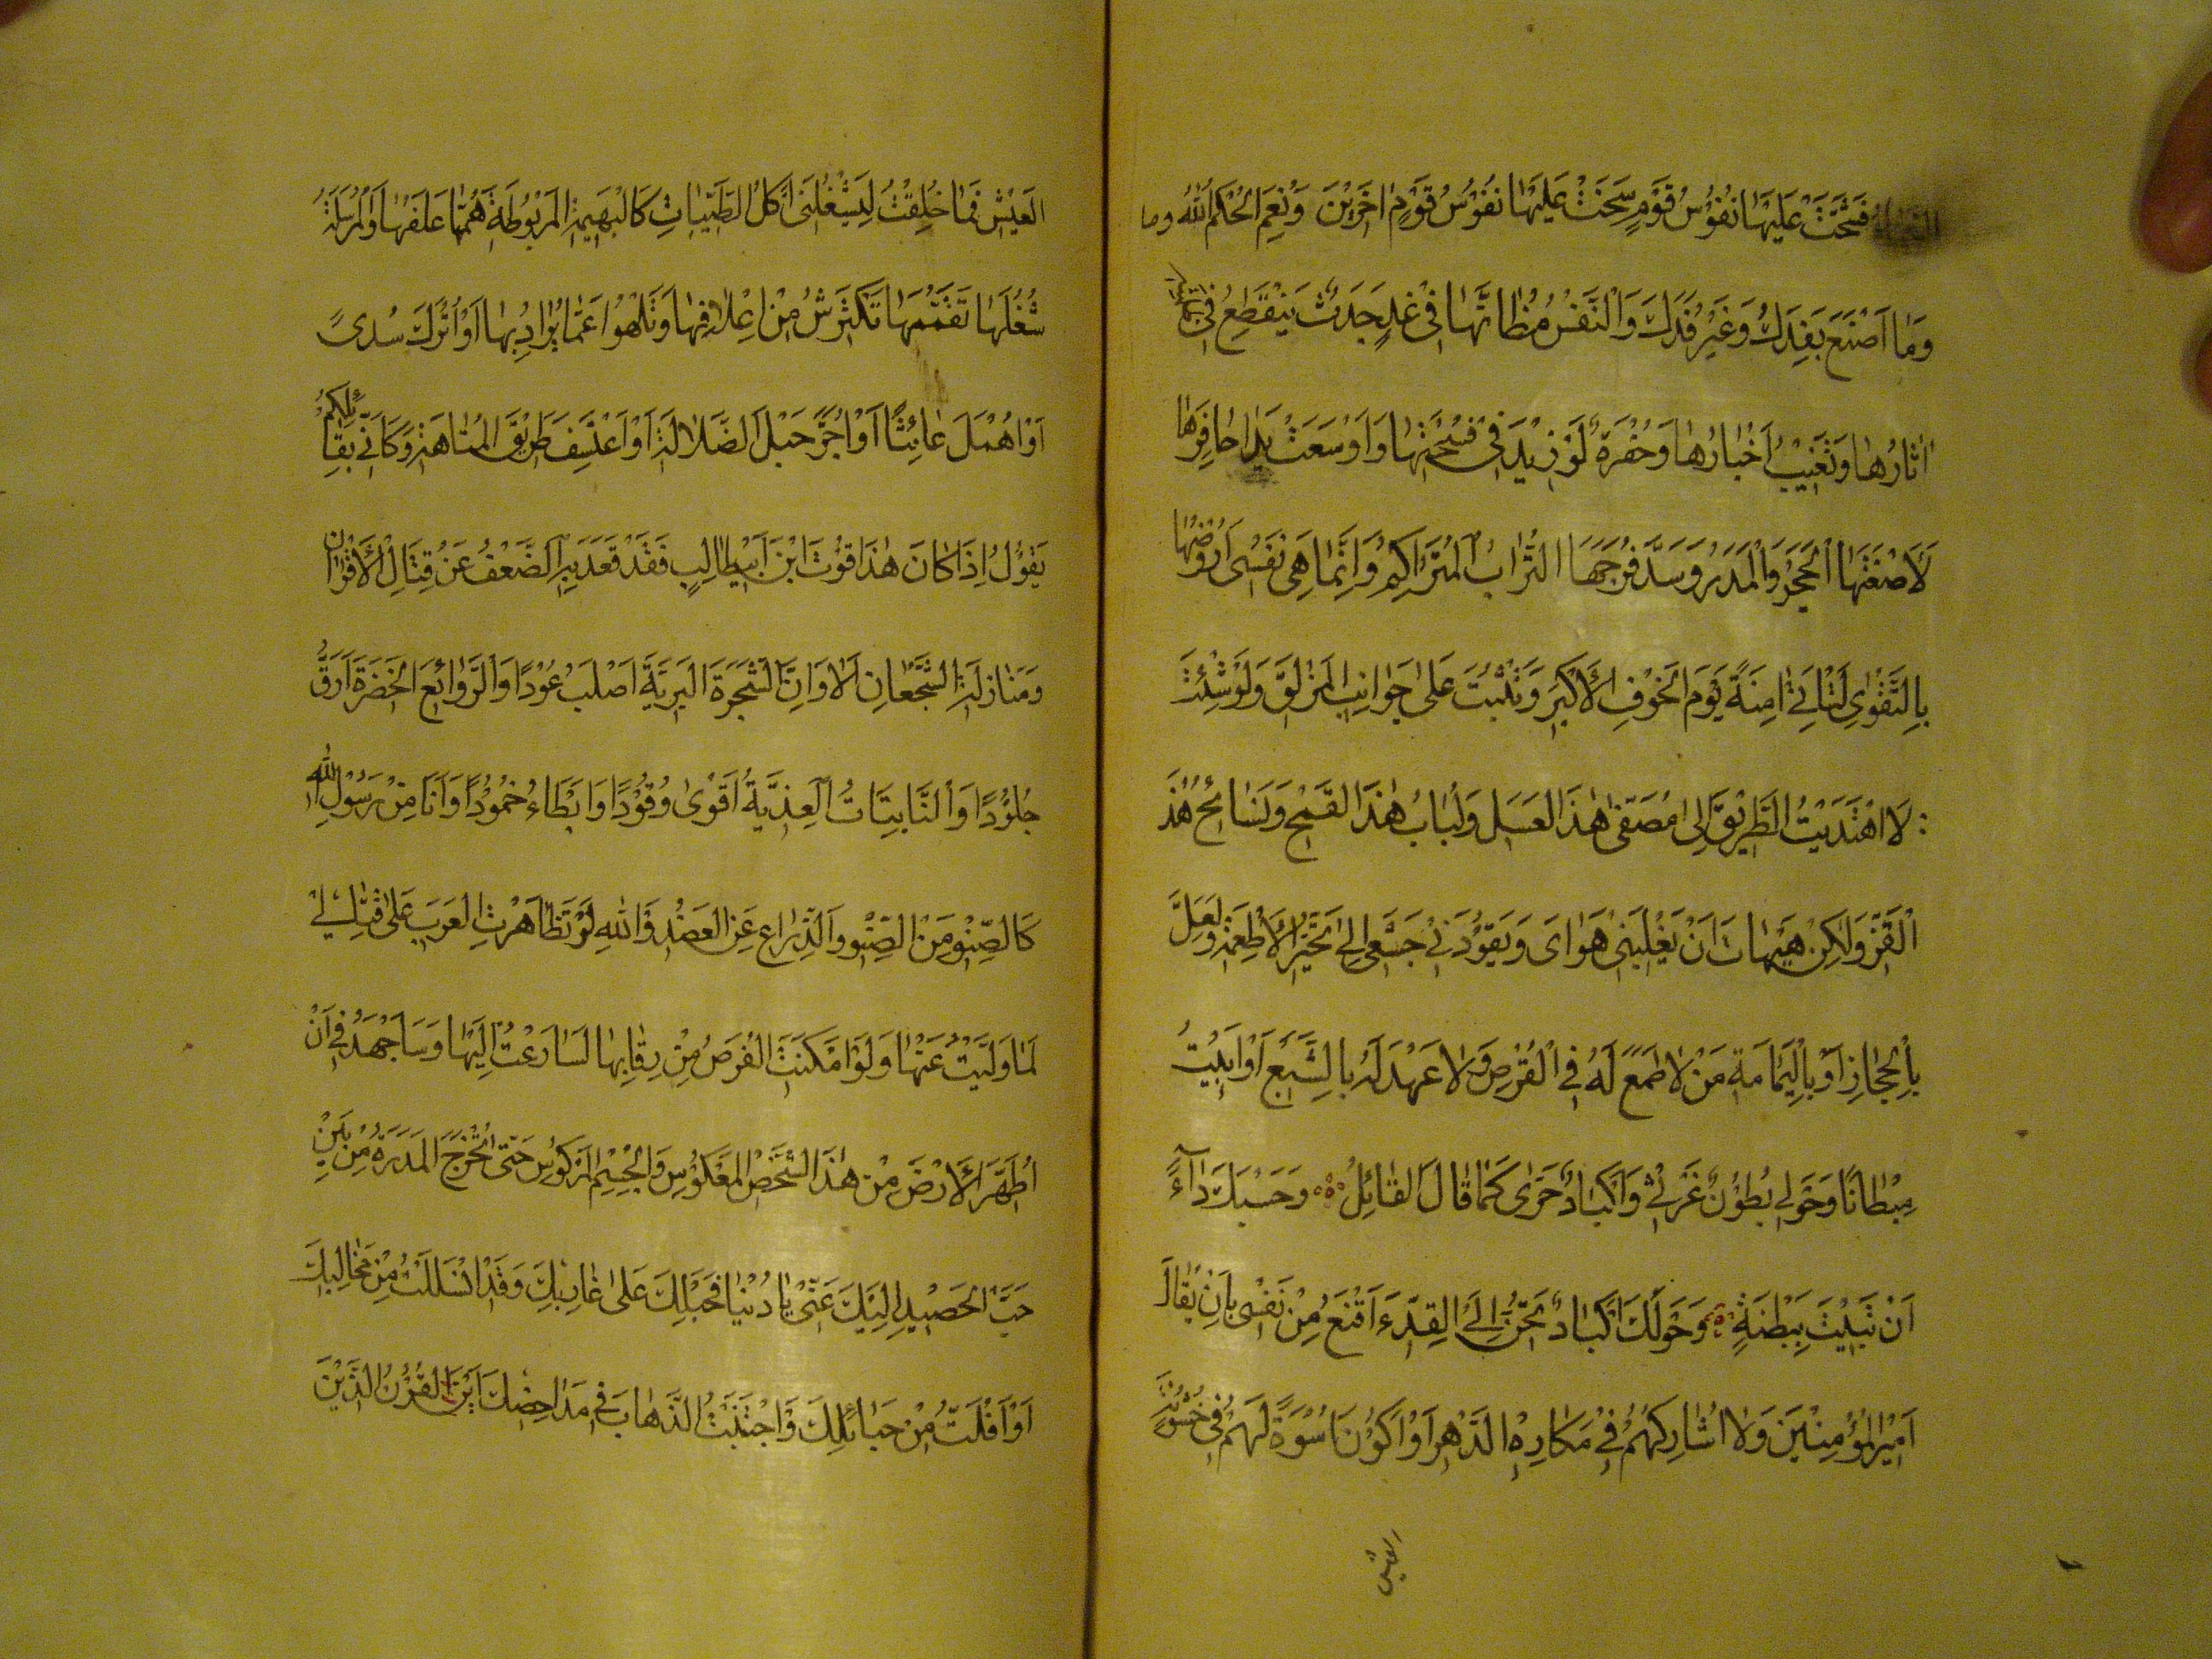 فَشَحَّتْ عَلَيْهَا نُفُوْسُ قَوْمٍ سَخَتْ عَلَيْهَا نُفُوْسُ قَوْمٍ اٰخَرِيْنَ وَنِعْمَ الْحَكَمُ اللهُ وما
وَمَا اَصْنَعُ بِفَدَكَ وَغَيْرِ فَدَكَ وَالنَّفْسُ مَظَانُّهَا فِيْ غَدٍ جَدَثٌ يَنْقَطِعُ فِيْ
اٰثَارُهَا وَتَغِيْبُ اَخْبَارُهَا وَحُفْرَةٌ لَوْ زِيْدَ فِيْ فُسْحَتِهَا وَاَوْسَعَتْ يَدَا حَافِرِهَا
لَاَضْغَطَهَا الْحَجَرُ وَالْمَدَرُ وَسَدَّ فُرَجَهَا التُّرَابُ الْمُتَرَاكِمُ وَاِنَّمَا هِيَ نَفْسِيْ اَرُوْضُهَا
بِالتَّقْوٰى لِتَاْتِيَ اٰمِنَةً يَوْمَ الْخَوْفِ الْاَكْبَرِ وَتَثْبُتَ عَلٰى جَوَانِبِ الْمَزْلَقِ وَلَوْ شِئْتُ
لَا اهْتَدَيْتُ الطَّرِيْقَ اِلٰى مُصَفّٰى هٰذَا الْعَسَلِ وَلُبَابِ هٰذَا الْقَمْحِ وَنَسَائِجِ هٰذَ
الْقَزِّ وَلٰكِنْ هَيْهَاتَ اَنْ يَغْلِبَنِيْ هَوَايَ وَيَقُوْدَنِيْ جَشَعِيْ اِلٰى تَخَيُّرِ الْاَطْعِمَةِ وَلَعَلَّ
بِالْحِجَازِ اَوْ بِالْيَمَامَةِ مَنْ لَا طَمَعَ لَهُ فِي الْقُرْصِ وَلَا عَهْدَ لَهُ بِالشِّبَعِ اَوْ اَبِيْتُ
مِبْطَانًا وَحَوْلِيْ بُطُوْنٌ غَرْثٰى وَاَكْبَادٌ حَرّٰى كَمَا قَالَ الْقَائِلُ وَحَسْبُكَ دَاءً
اَنْ تَبِيْتَ بِبِطْنَةٍ وَحَوْلَكَ اَكْبَادٌ تَحِنُّ اِلَى الْقِدِّ ءَاَقْنَعُ مِنْ نَفْسِيْ بِاَنْ يُقَالَ
اَمِيْرُ الْمُؤْمِنِيْنَ وَلَا اُشَارِكُهُمْ فِيْ مَكَارِهِ الدَّهْرِ اَوْ اَكُوْنَ اُسْوَةً لَهُمْ فِيْ خُشُوْنَةِ
العيش
الْعَيْشِ فَمَا خُلِقْتُ لِيَشْغَلَنِيْ اَكْلُ الطَّيِّبَاتِ كَالْبَهِيْمَةِ الْمَرْبُوْطَةِ هَمُّهَا عَلَفُهَا وَالْمُرْسَلَةِ
شُغْلُهَا تَقَمُّمُهَا تَكْتَرِشُ مِنْ اَعْلَافِهَا وَتَلْهُوْا عَمَّا يُرَادُ بِهَا اَوْ اُتْرَكَ سُدًى
اَوْ اُهْمَلَ عَابِثًا اَوْ اَجُرَّ حَبْلَ الضَّلَالَةِ اَوْ اَعْتَسِفَ طَرِيْقَ الْمَتَاهَةِ وَكَاَنِّيْ بِقَائِلِكُمْ
يَقُوْلُ اِذَا كَانَ هٰذَا قُوْتُ ابْنِ اَبِيْطَالِبٍ فَقَدْ قَعَدَ بِهِ الضَّعْفُ عَنْ قِتَالِ الْاَقْرَانِ
وَمُنَازَلَةِ الشُّجْعَانِ اَلَا وَاِنَّ الشَّجَرَةَ الْبَرِيَّةَ اَصْلَبُ عُوْدًا وَالرَّوَائِعَ الْخَضِرَةَ اَرَقُّ
جُلُوْدًا وَالنَّابِتَاتُ الْعِذْيَةُ اَقْوٰى وُقُوْدًا وَاَبْطَاءُ خُمُوْدًا وَاَنَا مِنْ رَسُوْلِ اللهِ
كَالصِّنْوِ مِنَ الصِّنْوِ وَالذِّرَاعِ عَنِ الْعَضُدِ وَاللهِ لَوْ تَظَاهَرَتِ الْعَرَبُ عَلٰى قِتَالِيْ
لَمَا وَلَّيْتُ عَنْهَا وَلَوْ اَمْكَنَتِ الْفُرَصُ مِنْ رِقَابِهَا لَسَارَعْتُ اِلَيْهَا وَسَاَجْهَدُ فِيْ اَنْ
اُطَهِّرَ الْاَرْضَ مِنْ هٰذَا الشَّخْصِ الْمَعْكُوْسِ وَالْجِسْمِ الْمَرْكُوْسِ حَتّٰى تَخْرُجَ الْمَدَرَةُ مِنْ بَيْنِ
حَبِّ الْحَصِيْدِ اِلَيْكَ عَنِّيْ يَا دُنْيَا فَحَبْلُكِ عَلٰى غَارِبِكِ وَقَدْ انْسَلَلْتُ مِنْ مَخَالِبِكَ
اَوْ اَفْلَتُّ مِنْ حَبَائِلِكَ وَاجْتَنَبْتُ الذَّهَابَ فِيْ مَدَاحِضِكَ اَيْنَ الْقُرُنُ الَّذِيْنَ